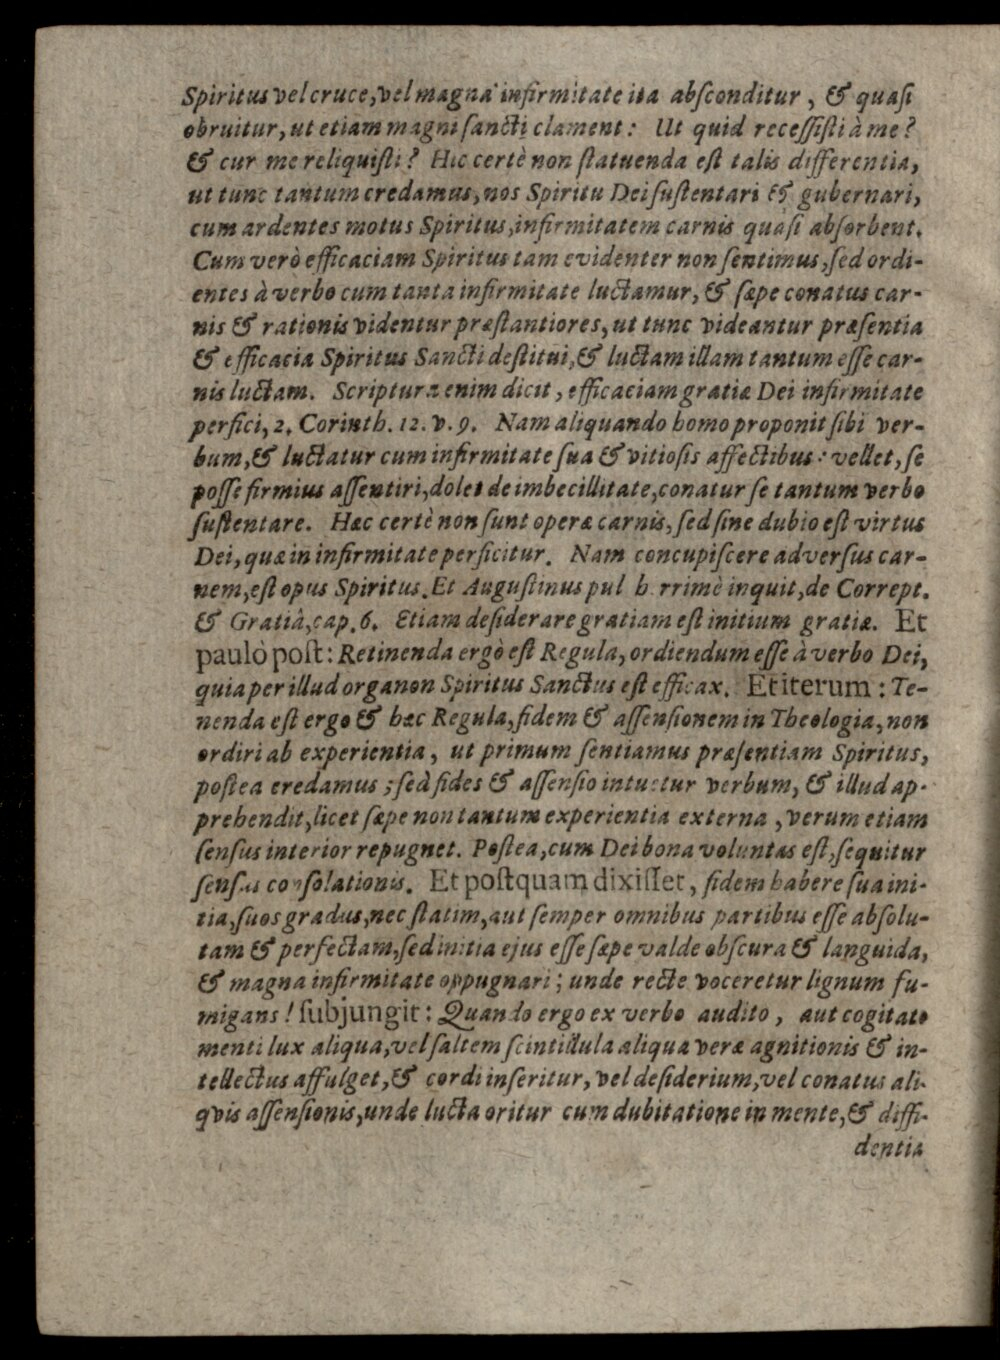 Spiritus vel cruce, vel magnâ infirmitate ita abſconditur, & quaſi
obruitur, ut etiam magni ſancti clament: Ut quid receſſiſti à me?
& cur me reliquiſti? Hic certè non ſtatuenda eſt talis differentia,
ut tunc tantum credamus, nos Spiritu Dei ſuſtentari & gubernari,
cum ardentes motus Spiritus, infirmitatem carnis quaſi abſorbent.
Cum verò efficaciam Spiritus tam evidenter non ſentimus, ſed ordi-
entes à verbo cum tanta infirmitate luctamur, & ſæpe conatus car-
nis & rationis videntur præſtantiores, ut tunc videantur præſentia
& efficacia Spiritus Sancti deſtitui, & luctam illam tantum eſſe car-
nis luctam. Scriptura enim dicit, efficaciam gratiæ Dei infirmitate
perfici, 2. Corinth. 12. v. 9. Nam aliquando homo proponit ſibi ver-
bum, & luctatur cum infirmitate ſua & vitioſis affectibus: vellet, ſe
poſſe firmius aſſentiri, dolet de imbecillitate, conatur ſe tantum verbo
ſuſtentare. Hæc certè non ſunt opera carnis, ſed ſine dubio eſt virtus
Dei, quæ in infirmitate perficitur. Nam concupiſcere adverſus car-
nem, eſt opus Spiritus. Et Auguſtinus pul h rrimè inquit, de Corrept.
& Gratiâ, cap. 6. Etiam deſiderare gratiam eſt initium gratiæ. Et
paulò poſt: Retinenda ergò eſt Regula, ordiendum eſſe à verbo Dei,
quia per illud organon Spiritus Sanctus eſt efficax. Et iterum: Te-
nenda eſt ergo & hæc Regula, fidem & aſſenſionem in Theologia, non
ordiri ab experientia, ut primum ſentiamus præſentiam Spiritus,
poſtea credamus; ſed fides & aſſenſio intuetur verbum, & illud ap-
prehendit, licet ſæpe non tantum experientia externa, verum etiam
ſenſus interior repugnet. Poſtea, cum Dei bona voluntas eſt, ſequitur
ſenſus conſolationis. Et poſtquam dixiſſet, fidem habere ſua ini-
tia, ſuos gradus, nec ſtatim, aut ſemper omnibus partibus eſſe abſolu-
tam & perfectam, ſed initia ejus eſſe ſæpe valde obſcura & languida,
& magna infirmitate oppugnari; unde recte voceretur lignum fu-
migans! ſubjungit: Quando ergo ex verbo audito, aut cogitato
menti lux aliqua, vel ſaltem ſcintillula aliqua veræ agnitionis & in-
tellectus affulget, & cordi inſeritur, vel deſiderium, vel conatus ali-
qvis aſſenſionis, unde lucta oritur cum dubitatione in mente, & diffi-
dentia